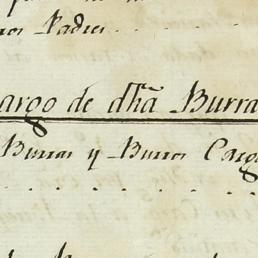 Padres
argo de dhã Burra
Burras y Burros Carg